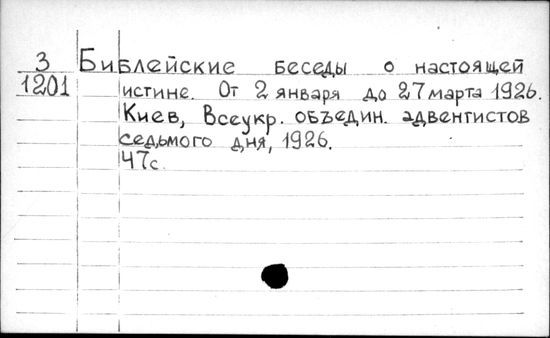 3 Библейские беседы о настоящей
1201 истине. От 2 января до 27 марта 1926.
Киев, Всеукр. объедин. адвентистов
седьмого дня, 1926.
47с.